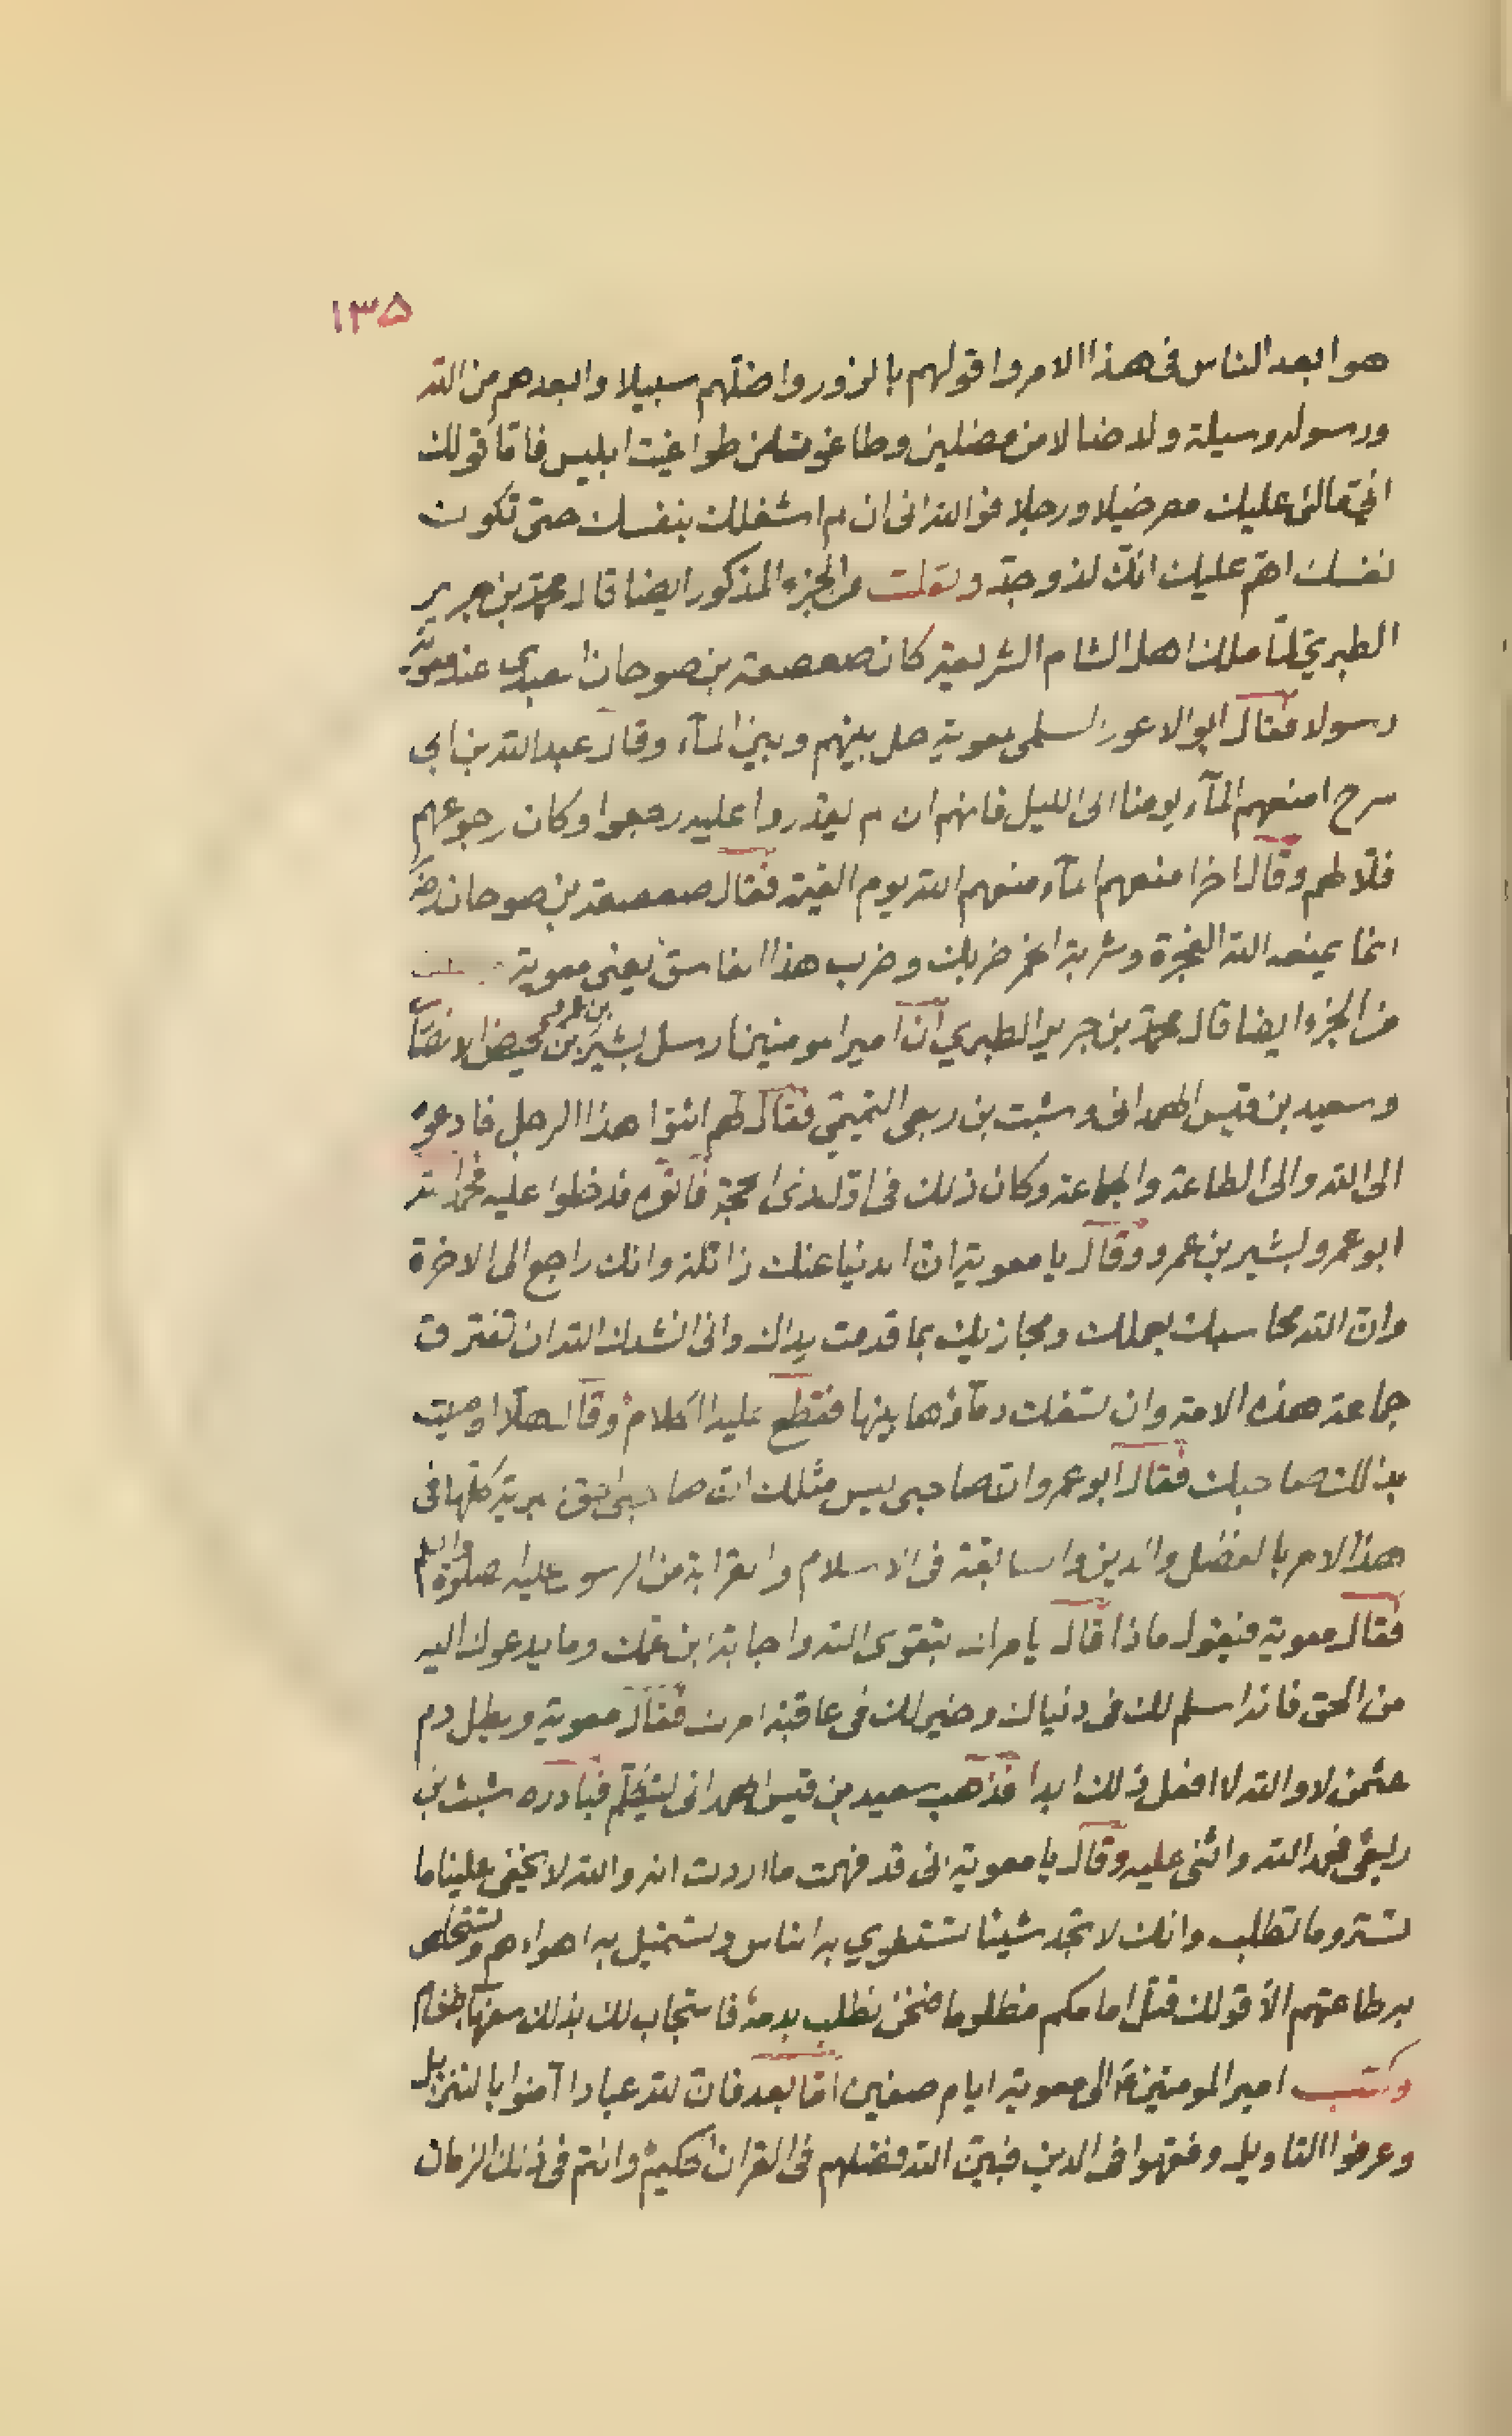 ١٣۵
هو ابعد الناس فى هذا الامر واقولهم بالزور واضلّهم سبيلا وابعدهم من الله
ورسوله وسيلة ولد ضالا من مضلين وطاغوت من طواغيت ابليس فامّا قولك
انى مالئ عليك مصر خيلا ورجلا فوالله انى ان لم اشغلك بنفسك حتى تكون
نفسك اهمّ عليك انّك لذو جدّ ونقلت من الجزء المذكور ايضا قال محمد بن جرير
الطبري لمّا ملك اهل الشام الشريعة كان صعصعة بن صوحان العبدي عند معوية
رسولا فقال ابو الاعور السلمى لمعوية حل بينهم وبين المآء وقال عبد الله بن ابى
سرح امنعهم المآء يومنا الى الليل فانهم ان لم يقدروا عليه رجعوا وكان رجوعهم
فلّا لهم وقال اخر امنعهم المآء منعهم الله يوم القيمة فقال صعصعة بن صوحان
انما يمنعه الله الفجرة وشربة الخمر ضربك وضرب هذا الفاسق يعنى معوية
من الجزء ايضا قال محمد بن جرير الطبري انّ امير المومنين ارسل بشير بن عمرو بن محيض الانصا
وسعيد بن قيس الهمدانى وشبث بن ربعى التميمي فقال لهم ائتوا هذا الرجل فادعوه
الى الله والى الطاعة والجماعة وكان ذلك فى اوّل ذى الحجة فاتوه فدخلوا عليه فحمد الله
ابو عمرو بشير بن عمرو وقال يا معوية ان الدنيا عنك زائلة وانك راجع الى الاخرة
وان الله محاسبك بعملك ومجازيك بما قدمت يداك وانى انشدك الله ان تفترق
جماعة هذه الامة وان تسفك دمآؤها بينها فقطع عليه الكلام وقال هلّا اوصيت
بذلك صاحبك فقال ابو عمرو ان صاحبى ليس مثلك ان صاحبى احق البرية كلّها فى
هذا الامر بالفضل والدين والسابقة فى الاسلام والقرابة من الرسول عليه الصلوة والسلم
فقال معوية فيقول ماذا قال يامرك بتقوى الله واجابة ابن عمّك وما يدعوك اليه
من الحق فانه اسلم لك فى دنياك وخير لك فى عاقبة امرك فقال معوية ويطل دم
عثمن لا والله لا افعل ذلك ابدا فذهب سعيد بن قيس الهمدانى ليتكلم فبادره شبث بن
ربعى فحمد الله واثنى عليه وقال يا معوية انى قد فهمت ما اردت انه والله لا يخفى علينا ما
تستر وما تطلب وانك لا تجد شيئا تستغوي به الناس وتستميل به اهواءهم وتستخلص
به طاعتهم الّا قولك قتل امامكم مظلوما فنحن نطلب بدمه فاستجاب لك بذلك سفهآء طغام
وكتب امير المومنين ع الى معوية ايام صفين امّا بعد فان لله عبادا آمنوا بالتنزيل
وعرفوا التاويل وفقهوا فى الدين فبيّن الله فضلهم فى القران الحكيم وانتم فى ذلك الزمان